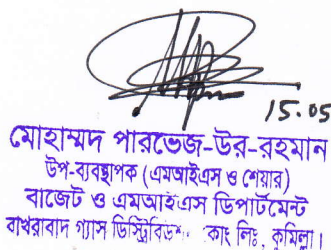 15.05
মোহাম্মদ পারভেজ-উর-রহমান
উপ-ব্যবস্থাপক (এমআইএস ও শেয়ার)
বাজেট ও এমআইএস ডিপার্টমেন্ট
বাখরাবাদ গ্যাস ডিস্ট্রিবিউশ কোং লিঃ, কুমিল্লা।